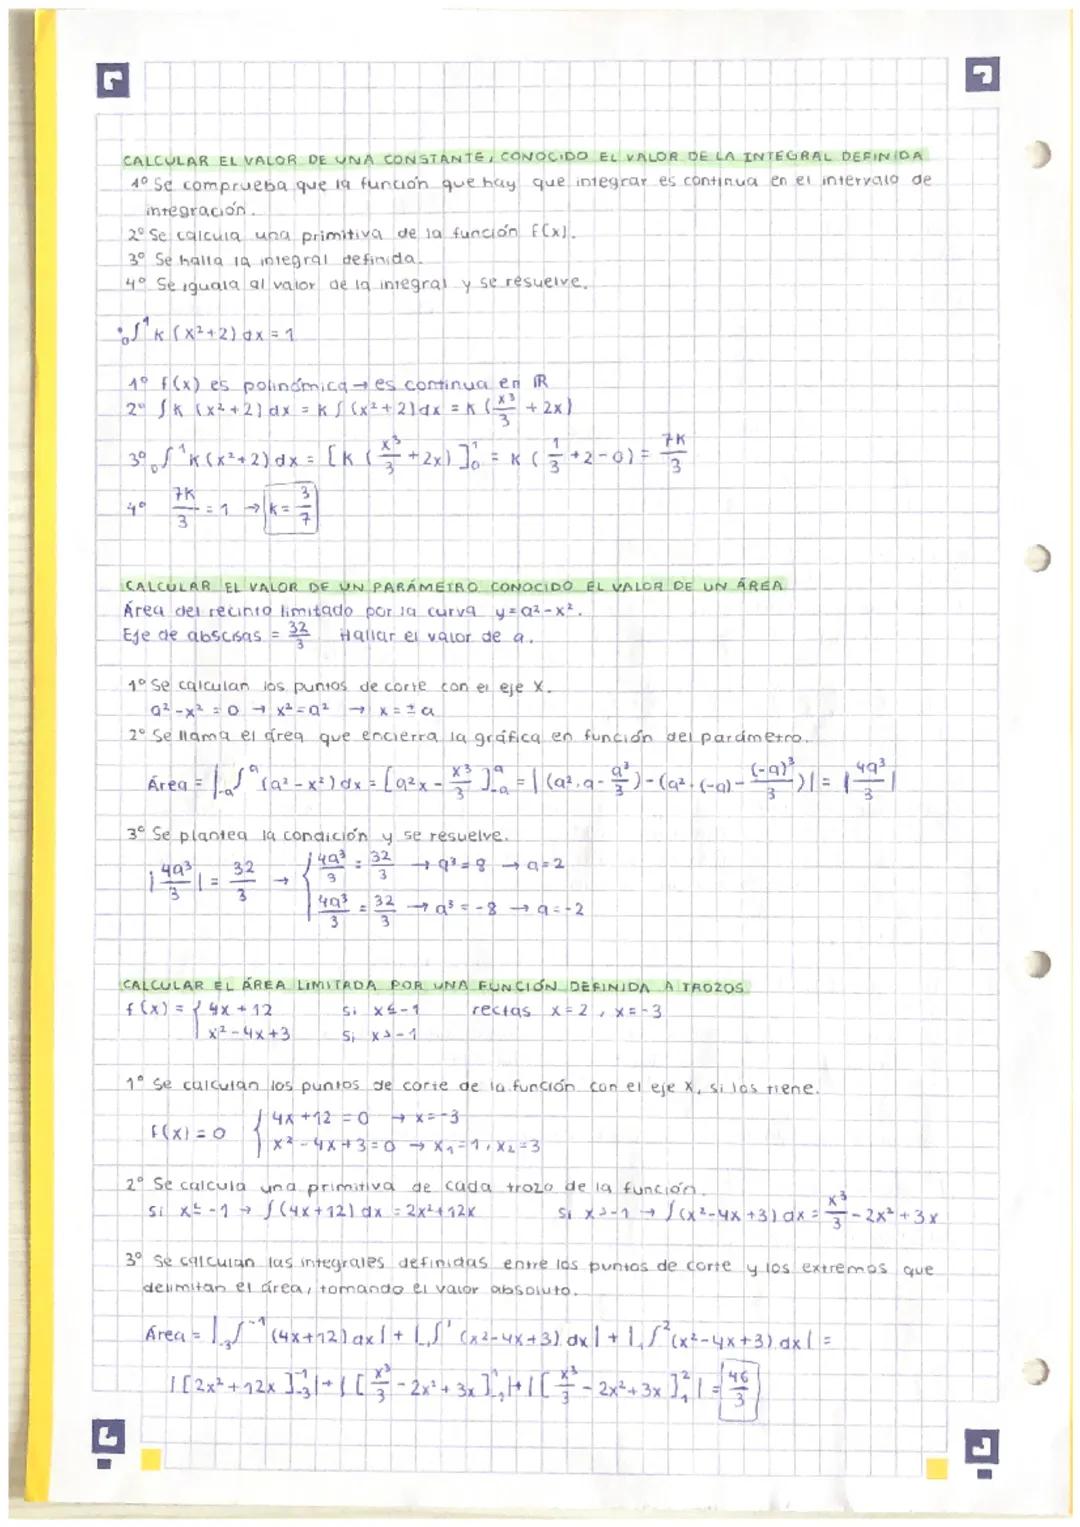 CALCULAR EL VALOR DE UNA CONSTANTE, CONOCIDO EL VALOR DE LA INTEGRAL DEFINIDA
1º Se comprueba que la función que hay que integrar es continua en el intervalo de
integración.
2º Se calcula una primitiva de la función f(x).
3º Se halla la integral definida.
4º Se iguala al valor de la integral y se resuelve.
· ₀∫¹ K (x²+2) dx = 1
1º f(x) es polinómica → es continua en ℝ
2º ∫K (x²+2) dx = K ∫ (x²+2) dx = K (x³/3 + 2x)
3º ₀∫¹ K (x²+2) dx = [K (x³/3 + 2x)]₀¹ = K (1/3 + 2 - 0) = 7K/3
4º 7K/3 = 1 → K = 3/7
CALCULAR EL VALOR DE UN PARÁMETRO CONOCIDO EL VALOR DE UN ÁREA
Área del recinto limitado por la curva y = a² - x².
Eje de abscisas = 32/3 Hallar el valor de a.
1º Se calculan los puntos de corte con el eje X.
a² - x² = 0 → x² = a² → x = ± a
2º Se llama el área que encierra la gráfica en función del parámetro.
Área = |₋ₐ∫ᵃ (a² - x²) dx = [a²x - x³/3]₋ₐᵃ = |(a².a - a³/3) - (a².(-a) - (-a)³/3)| = |4a³/3|
3º Se plantea la condición y se resuelve.
|4a³/3| = 32/3 → { 4a³/3 = 32/3 → a³ = 8 → a = 2
4a³/3 = 32/3 → a³ = -8 → a = -2
CALCULAR EL ÁREA LIMITADA POR UNA FUNCIÓN DEFINIDA A TROZOS
f(x) = { 4x + 12 si x ≤ -1 rectas x = 2, x = -3
x² - 4x + 3 si x > -1
1º Se calculan los puntos de corte de la función con el eje X, si los tiene.
f(x) = 0 { 4x + 12 = 0 → x = -3
x² - 4x + 3 = 0 → x₁ = 1, x₂ = 3
2º Se calcula una primitiva de cada trozo de la función.
si x ≤ -1 → ∫(4x + 12) dx = 2x² + 12x si x > -1 → ∫(x² - 4x + 3) dx = x³/3 - 2x² + 3x
3º Se calculan las integrales definidas entre los puntos de corte y los extremos que
delimitan el área, tomando el valor absoluto.
Área = |₋₃∫⁻¹ (4x+12) dx| + |₋₁∫¹ (x²-4x+3) dx| + |₁∫² (x²-4x+3) dx| =
|[2x² + 12x]₋₃⁻¹| + |[x³/3 - 2x² + 3x]₋₁¹| + |[x³/3 - 2x² + 3x]₁²| = 46/3